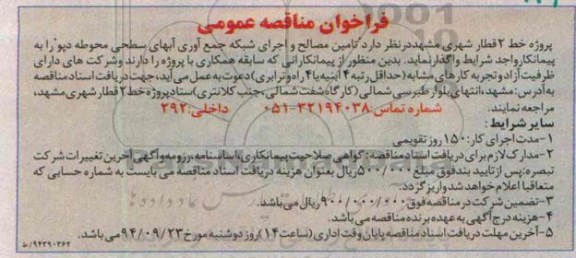 فراخوان مناقصه عمومی
پروژه خط ۲ قطار شهری مشهد در نظر دارد "تامین مصالح و اجرای شبکه جمع آوری آبهای سطحی محوطه دپو" را به
پیمانکار واجد شرایط واگذار نماید. بدین منظور از پیمانکارانی که سابقه همکاری با پروژه را دارند و شرکت های دارای
ظرفیت آزاد و تجربه کارهای مشابه (حداقل رتبه ۴ ابنیه یا ۴ راه و ترابری) دعوت به عمل می آید، جهت دریافت اسناد مناقصه
به آدرس: مشهد، انتهای بلوار طبرسی شمالی (کارگاه شفت شمالی، جنب کلانتری) ستاد پروژه خط ۲ قطار شهری مشهد،
مراجعه نمایند. شماره تماس: ۳۲۱۹۴۰۳۸-۰۵۱ داخلی: ۲۹۲
سایر شرایط:
۱-مدت اجرای کار: ۱۵۰ روز تقویمی
۲-مدارک لازم برای دریافت اسناد مناقصه: گواهی صلاحیت پیمانکاری، اساسنامه، رزومه و آگهی آخرین تغییرات شرکت
تبصره: پس از تایید بند فوق مبلغ ۵۰۰/۰۰۰ ریال بعنوان هزینه دریافت اسناد مناقصه می بایست به شماره حسابی که
متعاقبا اعلام خواهد شد واریز گردد.
۳-تضمین شرکت در مناقصه فوق ۹۰۰/۰۰۰/۰۰۰ ریال می باشد.
۴-هزینه درج آگهی به عهده برنده مناقصه می باشد.
۵-آخرین مهلت دریافت اسناد مناقصه پایان وقت اداری (ساعت ۱۴) روز دوشنبه مورخ ۹۴/۰۹/۲۳ می باشد.